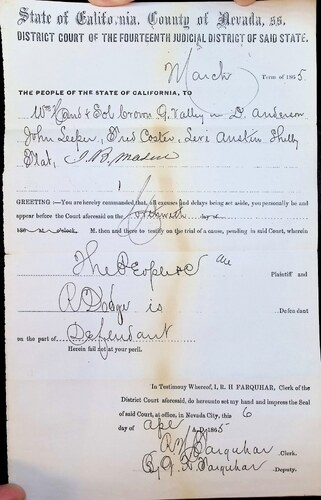 State of California. County of Nevada, ss.
DISTRICT COURT OF THE FOURTEENTH JUDICIAL DISTRICT OF SAID STATE.
March Term of 1865
THE PEOPLE OF THE STATE OF CALIFORNIA, TO
Wm Hand & Sol Crown G. Valley Anderson
John Leeper, Fred Coster, Levi Austin
Flat, J. B. Mason
GREETING:—You are hereby commanded, all excuses and delays being set aside, you personally be and
appear before the Court aforesaid on the forthwith
M. then and there to testify on the trial of a cause, pending in said Court, wherein
The People are Plaintiff and
R Dodge is Defendant
on the part of Defendant
Herein fail not at your peril.
In Testimony Whereof, I, R. H FARQUHAR, Clerk of the
District Court aforesaid, do hereunto set my hand and impress the Seal
of said Court, at office, in Nevada City, this 6
day of Apl A.D. 1865
R H Farquhar Clerk.
By G. K. Farquhar Deputy.